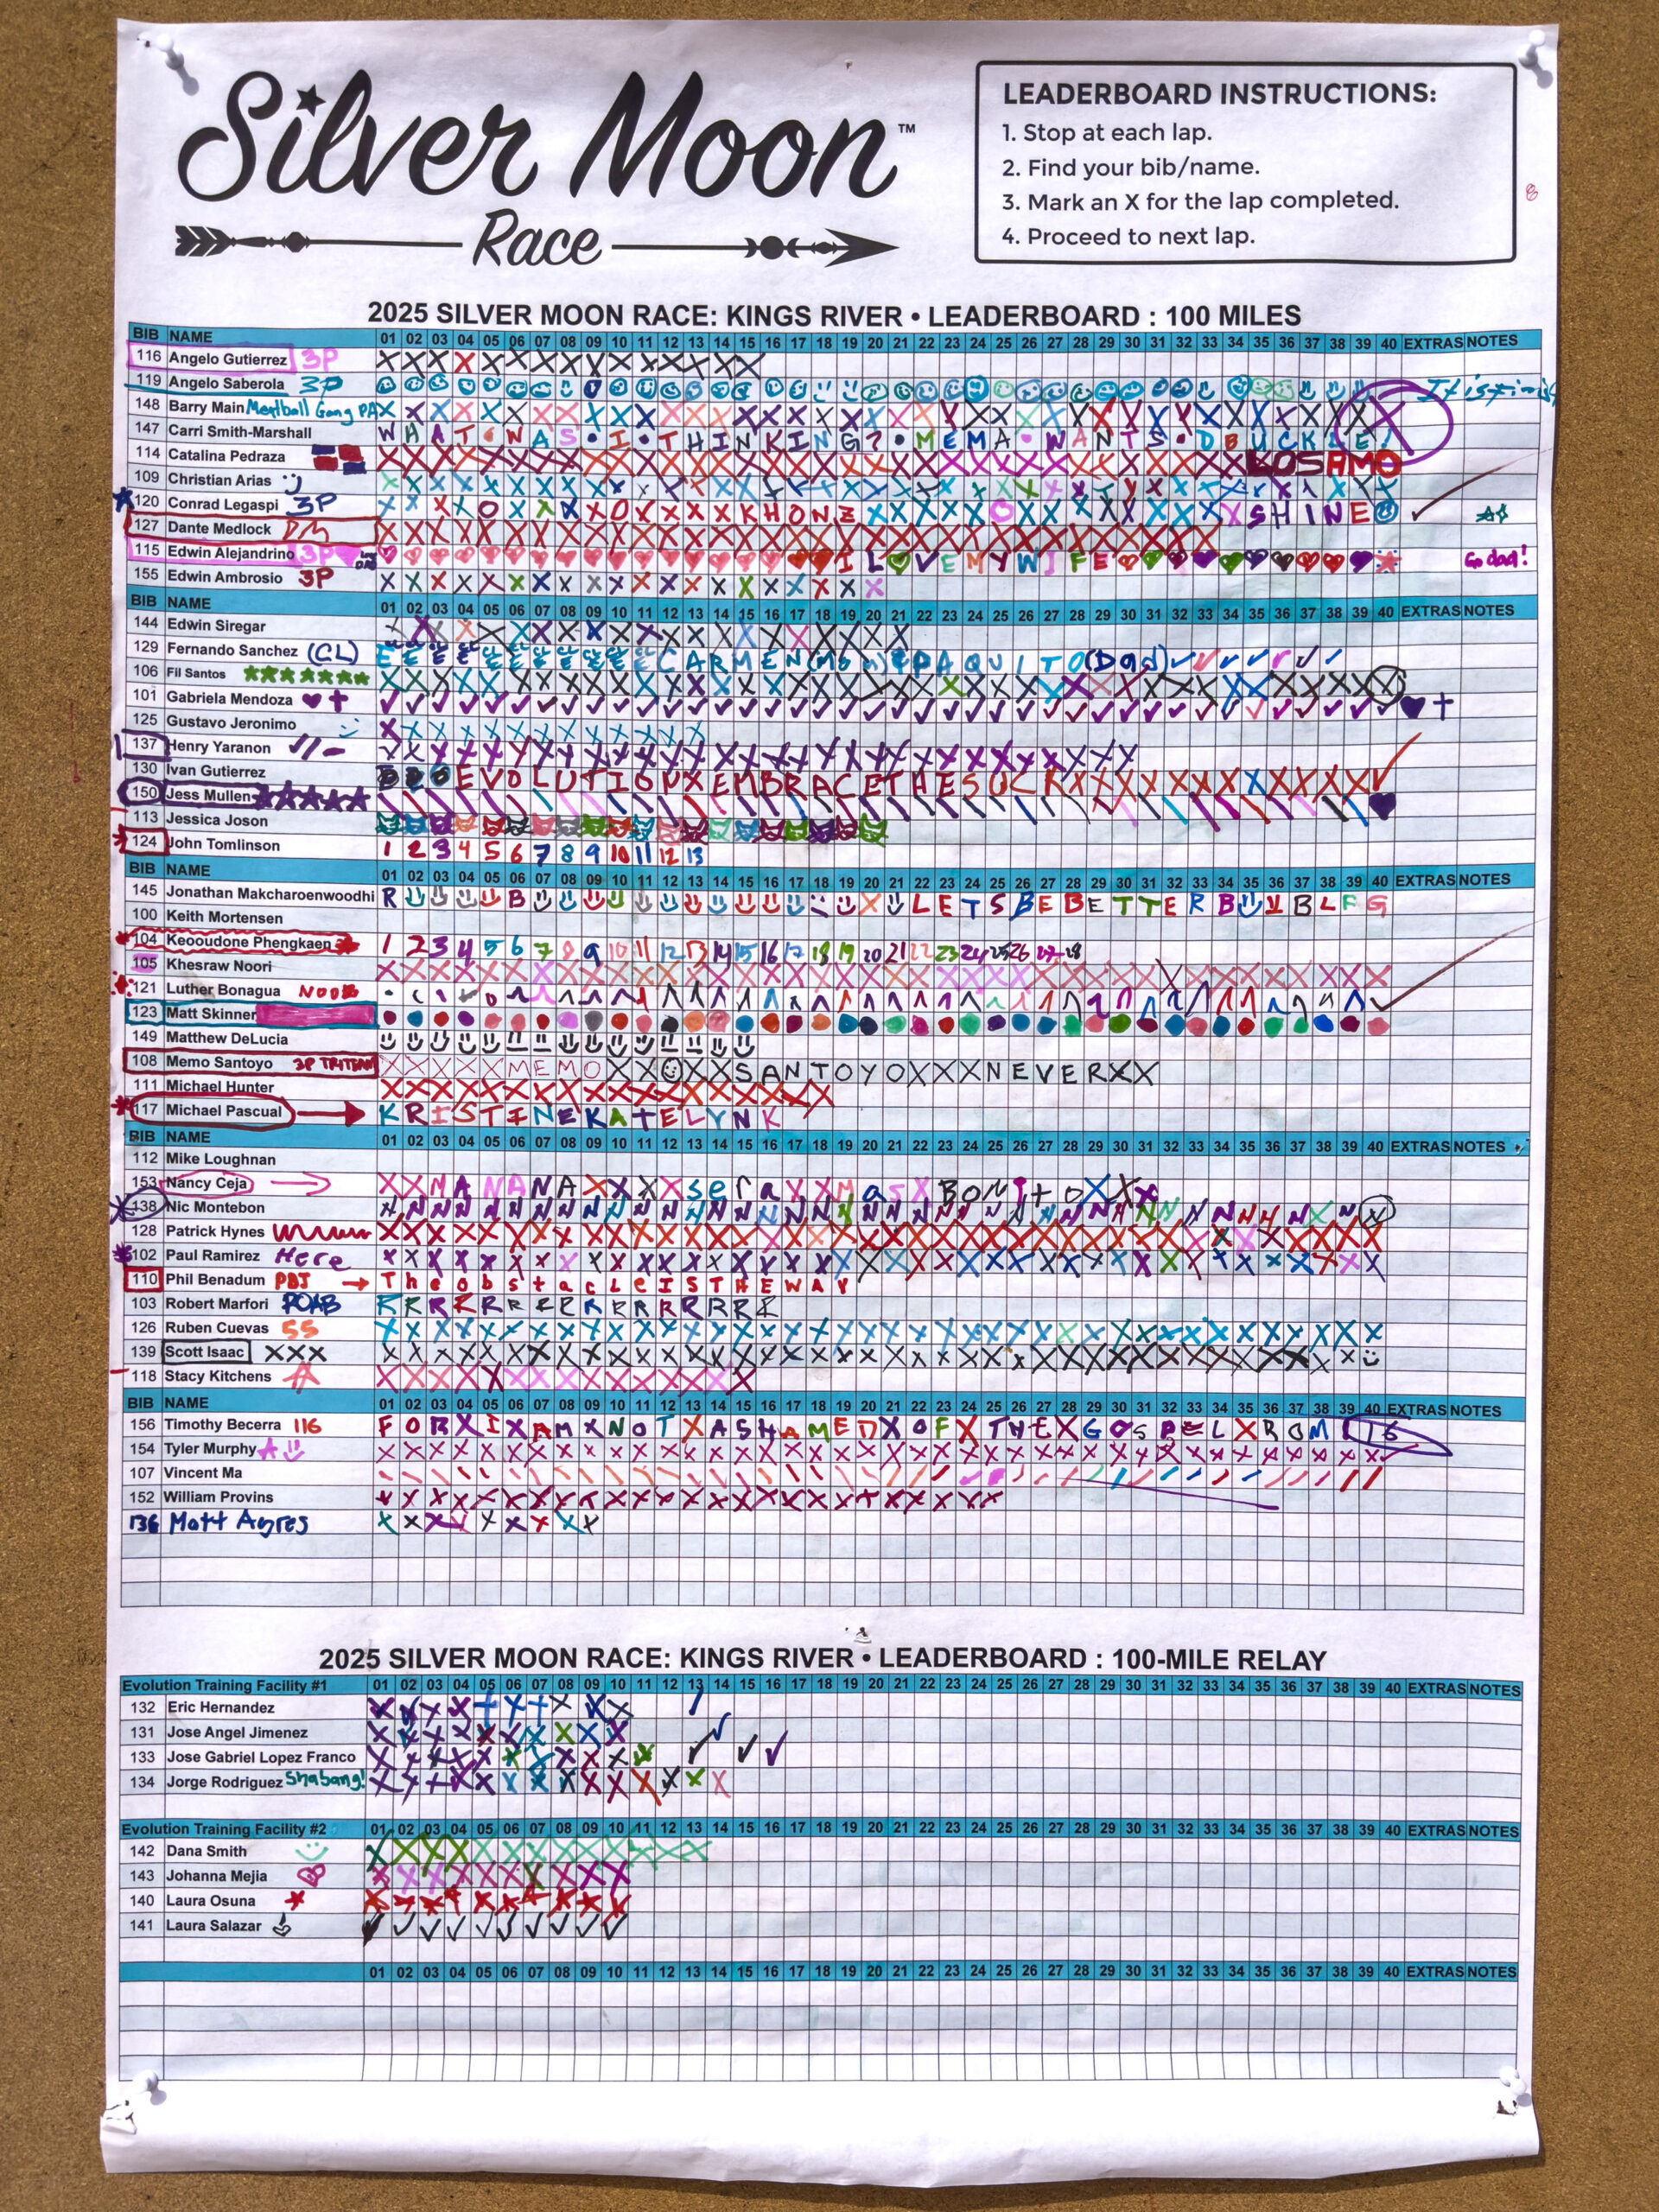 Silver Moon™
Race
LEADERBOARD INSTRUCTIONS:
1. Stop at each lap.
2. Find your bib/name.
3. Mark an X for the lap completed.
4. Proceed to next lap.
2025 SILVER MOON RACE: KINGS RIVER • LEADERBOARD : 100 MILES
BIB NAME 01 02 03 04 05 06 07 08 09 10 11 12 13 14 15 16 17 18 19 20 21 22 23 24 25 26 27 28 29 30 31 32 33 34 35 36 37 38 39 40 EXTRAS NOTES
116 Angelo Gutierrez 3P X X X X X X X X X X X X X X X
119 Angelo Saberola 3P
148 Barry Main Meatball Gang PAX
147 Carri Smith-Marshall W H A T • W A S • I • T H I N K I N G ? • M E M A • W A N T S • D B U C K L E !
114 Catalina Pedraza LOSAMO
109 Christian Arias
120 Conrad Legaspi 3P X X X X O X X X X O X X X X K H O N Z X X X X X O X X X X X X X X X S H I N E
127 Dante Medlock DM
115 Edwin Alejandrino 3P I L O V E M Y W I F E Go dad!
155 Edwin Ambrosio 3P X X X X X X X X X X X X X X X X X X X X
BIB NAME 01 02 03 04 05 06 07 08 09 10 11 12 13 14 15 16 17 18 19 20 21 22 23 24 25 26 27 28 29 30 31 32 33 34 35 36 37 38 39 40 EXTRAS NOTES
144 Edwin Siregar X X X X X X X X X X X X X X X X X X X X X
129 Fernando Sanchez (CL) C A R M E N (Mom) & P A Q U I T O (Dad)
106 Fil Santos
101 Gabriela Mendoza
125 Gustavo Jeronimo X X X X X X X X X X X X X
137 Henry Yaranon
130 Ivan Gutierrez E V O L U T I O N X E M B R A C E T H E S U C K X X X X X X X X X X X X
150 Jess Mullen
113 Jessica Joson
124 John Tomlinson 1 2 3 4 5 6 7 8 9 10 11 12 13
BIB NAME 01 02 03 04 05 06 07 08 09 10 11 12 13 14 15 16 17 18 19 20 21 22 23 24 25 26 27 28 29 30 31 32 33 34 35 36 37 38 39 40 EXTRAS NOTES
145 Jonathan Makcharoenwoodhi R B X L E T S B E B E T T E R B B L F G
100 Keith Mortensen
104 Keooudone Phengkaen 1 2 3 4 5 6 7 8 9 10 11 12 13 14 15 16 17 18 19 20 21 22 23 24 25 26 27 28
105 Khesraw Noori
121 Luther Bonagua NOOB
123 Matt Skinner
149 Matthew DeLucia
108 Memo Santoyo 3P TRITEAM X X X X X M E M O X X X X S A N T O Y O X X X N E V E R X X
111 Michael Hunter X X X X X X X X X X X X X X X X X X
117 Michael Pascual K R I S T I N E K A T E L Y N K
BIB NAME 01 02 03 04 05 06 07 08 09 10 11 12 13 14 15 16 17 18 19 20 21 22 23 24 25 26 27 28 29 30 31 32 33 34 35 36 37 38 39 40 EXTRAS NOTES
112 Mike Loughnan
153 Nancy Ceja X X N A N A N A X X X X s e r a X X M a s X B O N I t o X X X
138 Nic Montebon
128 Patrick Hynes
102 Paul Ramirez Here
110 Phil Benadum PBJ T h e o b s t a c L e I S T H E W A Y
103 Robert Marfori ROAB R R R R R R R R R R R R R R R R
126 Ruben Cuevas SS
139 Scott Isaac XXX
118 Stacy Kitchens X X X X X X X X X X X X X X X
BIB NAME 01 02 03 04 05 06 07 08 09 10 11 12 13 14 15 16 17 18 19 20 21 22 23 24 25 26 27 28 29 30 31 32 33 34 35 36 37 38 39 40 EXTRAS NOTES
156 Timothy Becerra 116 F O R X I X A M X N O T X A S H A M E D X O F X T H E X G O S P E L X R O M 1 16
154 Tyler Murphy
107 Vincent Ma
152 William Provins X X X X X X X X X X X X X X X X X X X X X X X X X
136 Matt Ayres X X X X X X X X X
2025 SILVER MOON RACE: KINGS RIVER • LEADERBOARD : 100-MILE RELAY
Evolution Training Facility #1 01 02 03 04 05 06 07 08 09 10 11 12 13 14 15 16 17 18 19 20 21 22 23 24 25 26 27 28 29 30 31 32 33 34 35 36 37 38 39 40 EXTRAS NOTES
132 Eric Hernandez X X X X X X X X X X
131 Jose Angel Jimenez X X X X X X X X X X
133 Jose Gabriel Lopez Franco X X X X X X X X X X X
134 Jorge Rodriguez Shabang! X X X X X X X X X X X X X X
Evolution Training Facility #2 01 02 03 04 05 06 07 08 09 10 11 12 13 14 15 16 17 18 19 20 21 22 23 24 25 26 27 28 29 30 31 32 33 34 35 36 37 38 39 40 EXTRAS NOTES
142 Dana Smith X X X X X X X X X X X X X
143 Johanna Mejia X X X X X X X X X X
140 Laura Osuna
141 Laura Salazar
01 02 03 04 05 06 07 08 09 10 11 12 13 14 15 16 17 18 19 20 21 22 23 24 25 26 27 28 29 30 31 32 33 34 35 36 37 38 39 40 EXTRAS NOTES